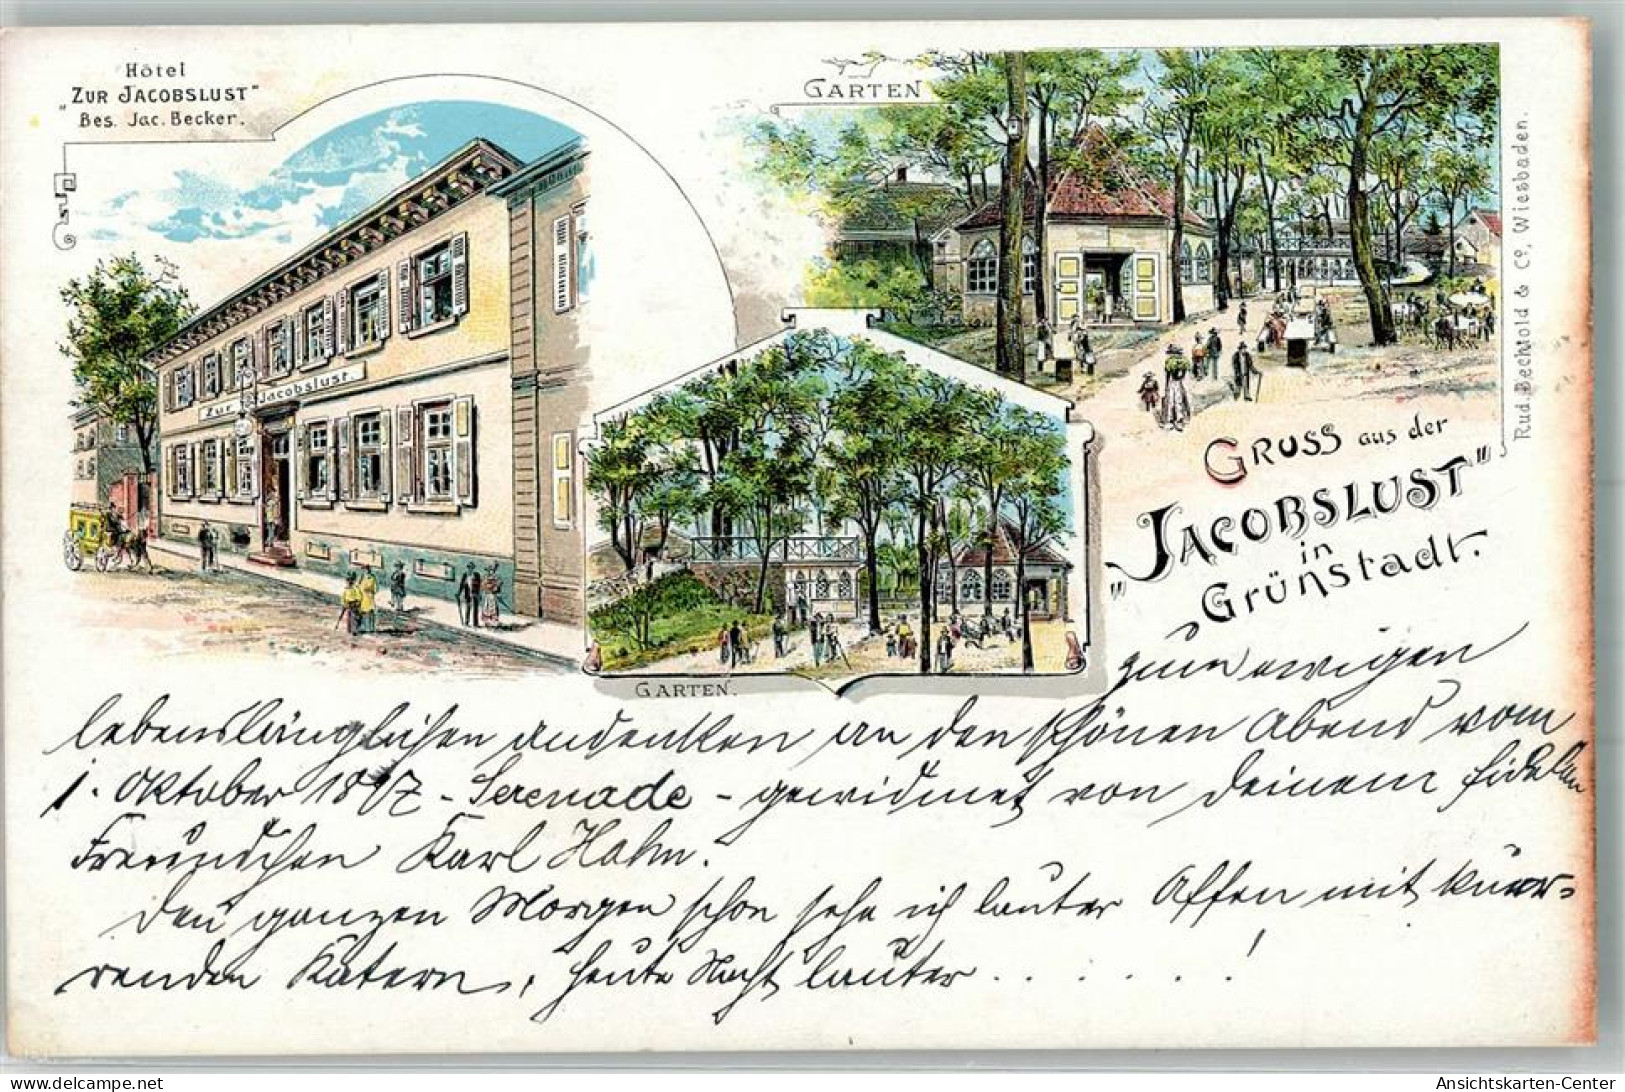 Hôtel
„Zur Jacobslust"
Bes. Jac. Becker.
Garten
Zur Jacobslust.
Garten.
Rud. Bechtold & Co, Wiesbaden.
Gruss aus der
„Jacobslust"
in
Grünstadt.
zum ewigen
lebenslänglichen Andenken an den schönen Abend vom
1. Oktober 1897 - Serenade - gewidmet von Deinem fidelen
Freundchen Karl Hahn.
Den ganzen Morgen schon sehe ich lauter Affen mit
renden Katern, heute Nacht lauter . . . . . . !
Ansichtskarten-Center